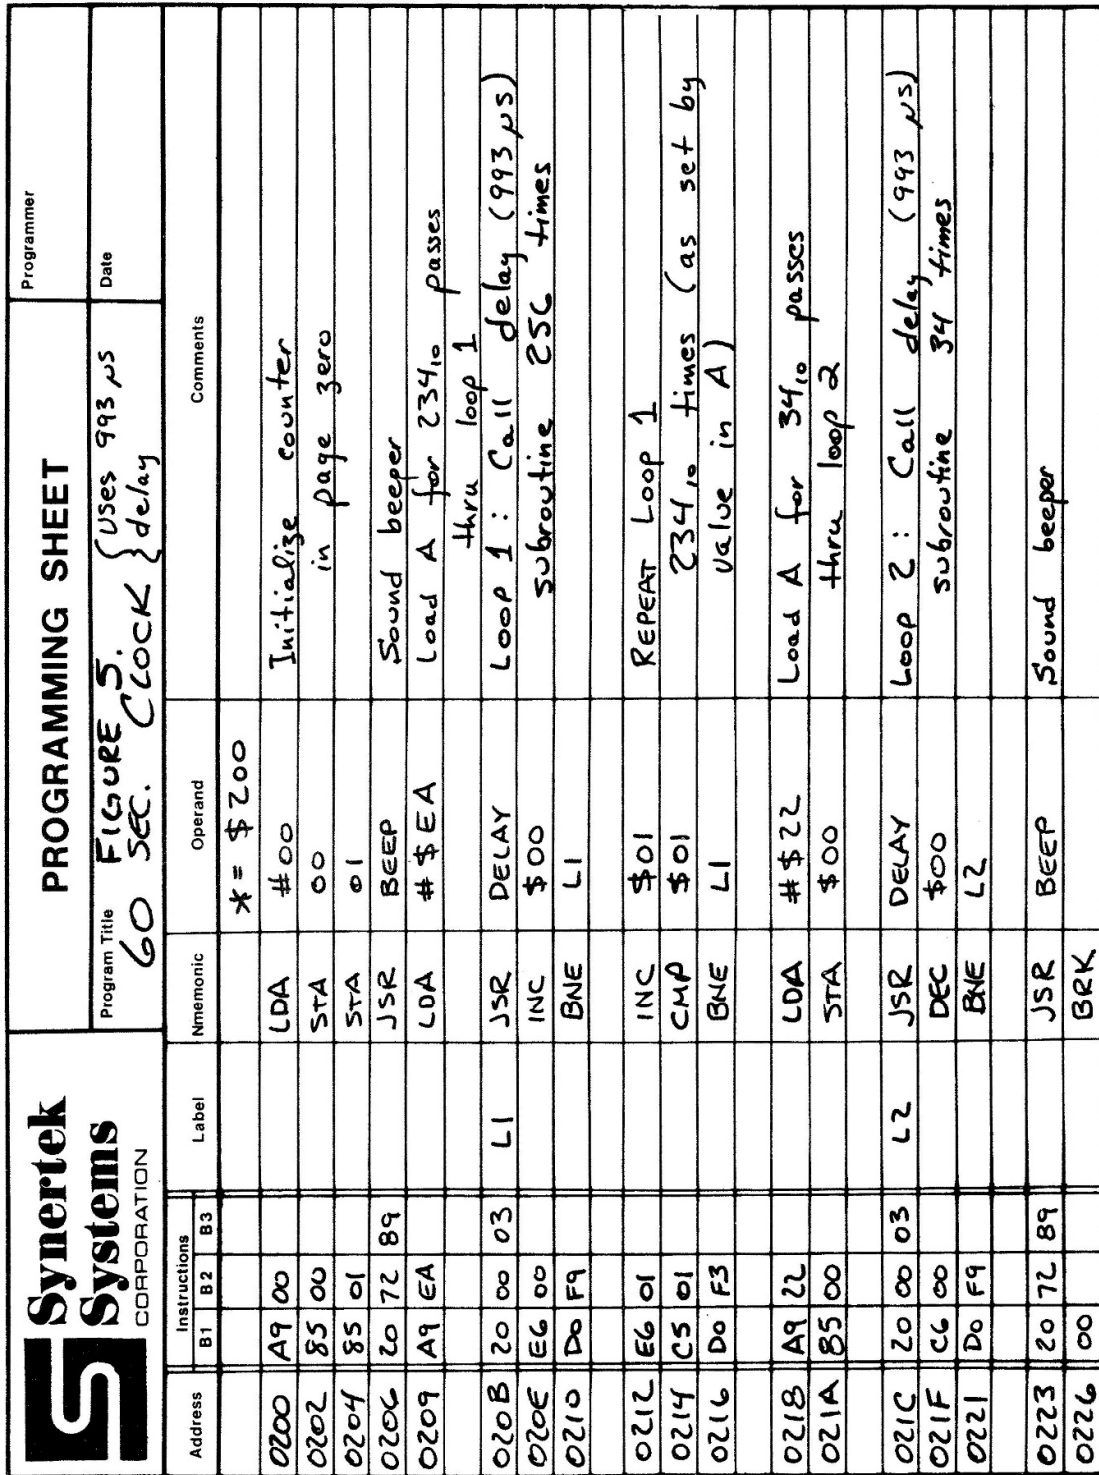 Synertek
Systems
CORPORATION
PROGRAMMING SHEET
Programmer
Program Title FIGURE 5. {Uses 993 µs
60 SEC. CLOCK } delay
Date
Address Instructions Label Nmemonic Operand Comments
B1 B2 B3
*= $200
0200 A9 00 LDA #00 Initialize counter
0202 85 00 STA 00 in page zero
0204 85 01 STA 01
0206 20 72 89 JSR BEEP Sound beeper
0209 A9 EA LDA #$EA Load A for 234₁₀ passes
thru loop 1
020B 20 00 03 L1 JSR DELAY Loop 1: Call delay (993 µs)
020E E6 00 INC $00 subroutine 256 times
0210 D0 F9 BNE L1
0212 E6 01 INC $01 REPEAT Loop 1
0214 C5 01 CMP $01 234₁₀ times (as set by
0216 D0 F3 BNE L1 value in A)
0218 A9 22 LDA #$22 Load A for 34₁₀ passes
021A 85 00 STA $00 thru loop 2
021C 20 00 03 L2 JSR DELAY Loop 2: Call delay (993 µs)
021F C6 00 DEC $00 subroutine 34 times
0221 D0 F9 BNE L2
0223 20 72 89 JSR BEEP Sound beeper
0226 00 BRK